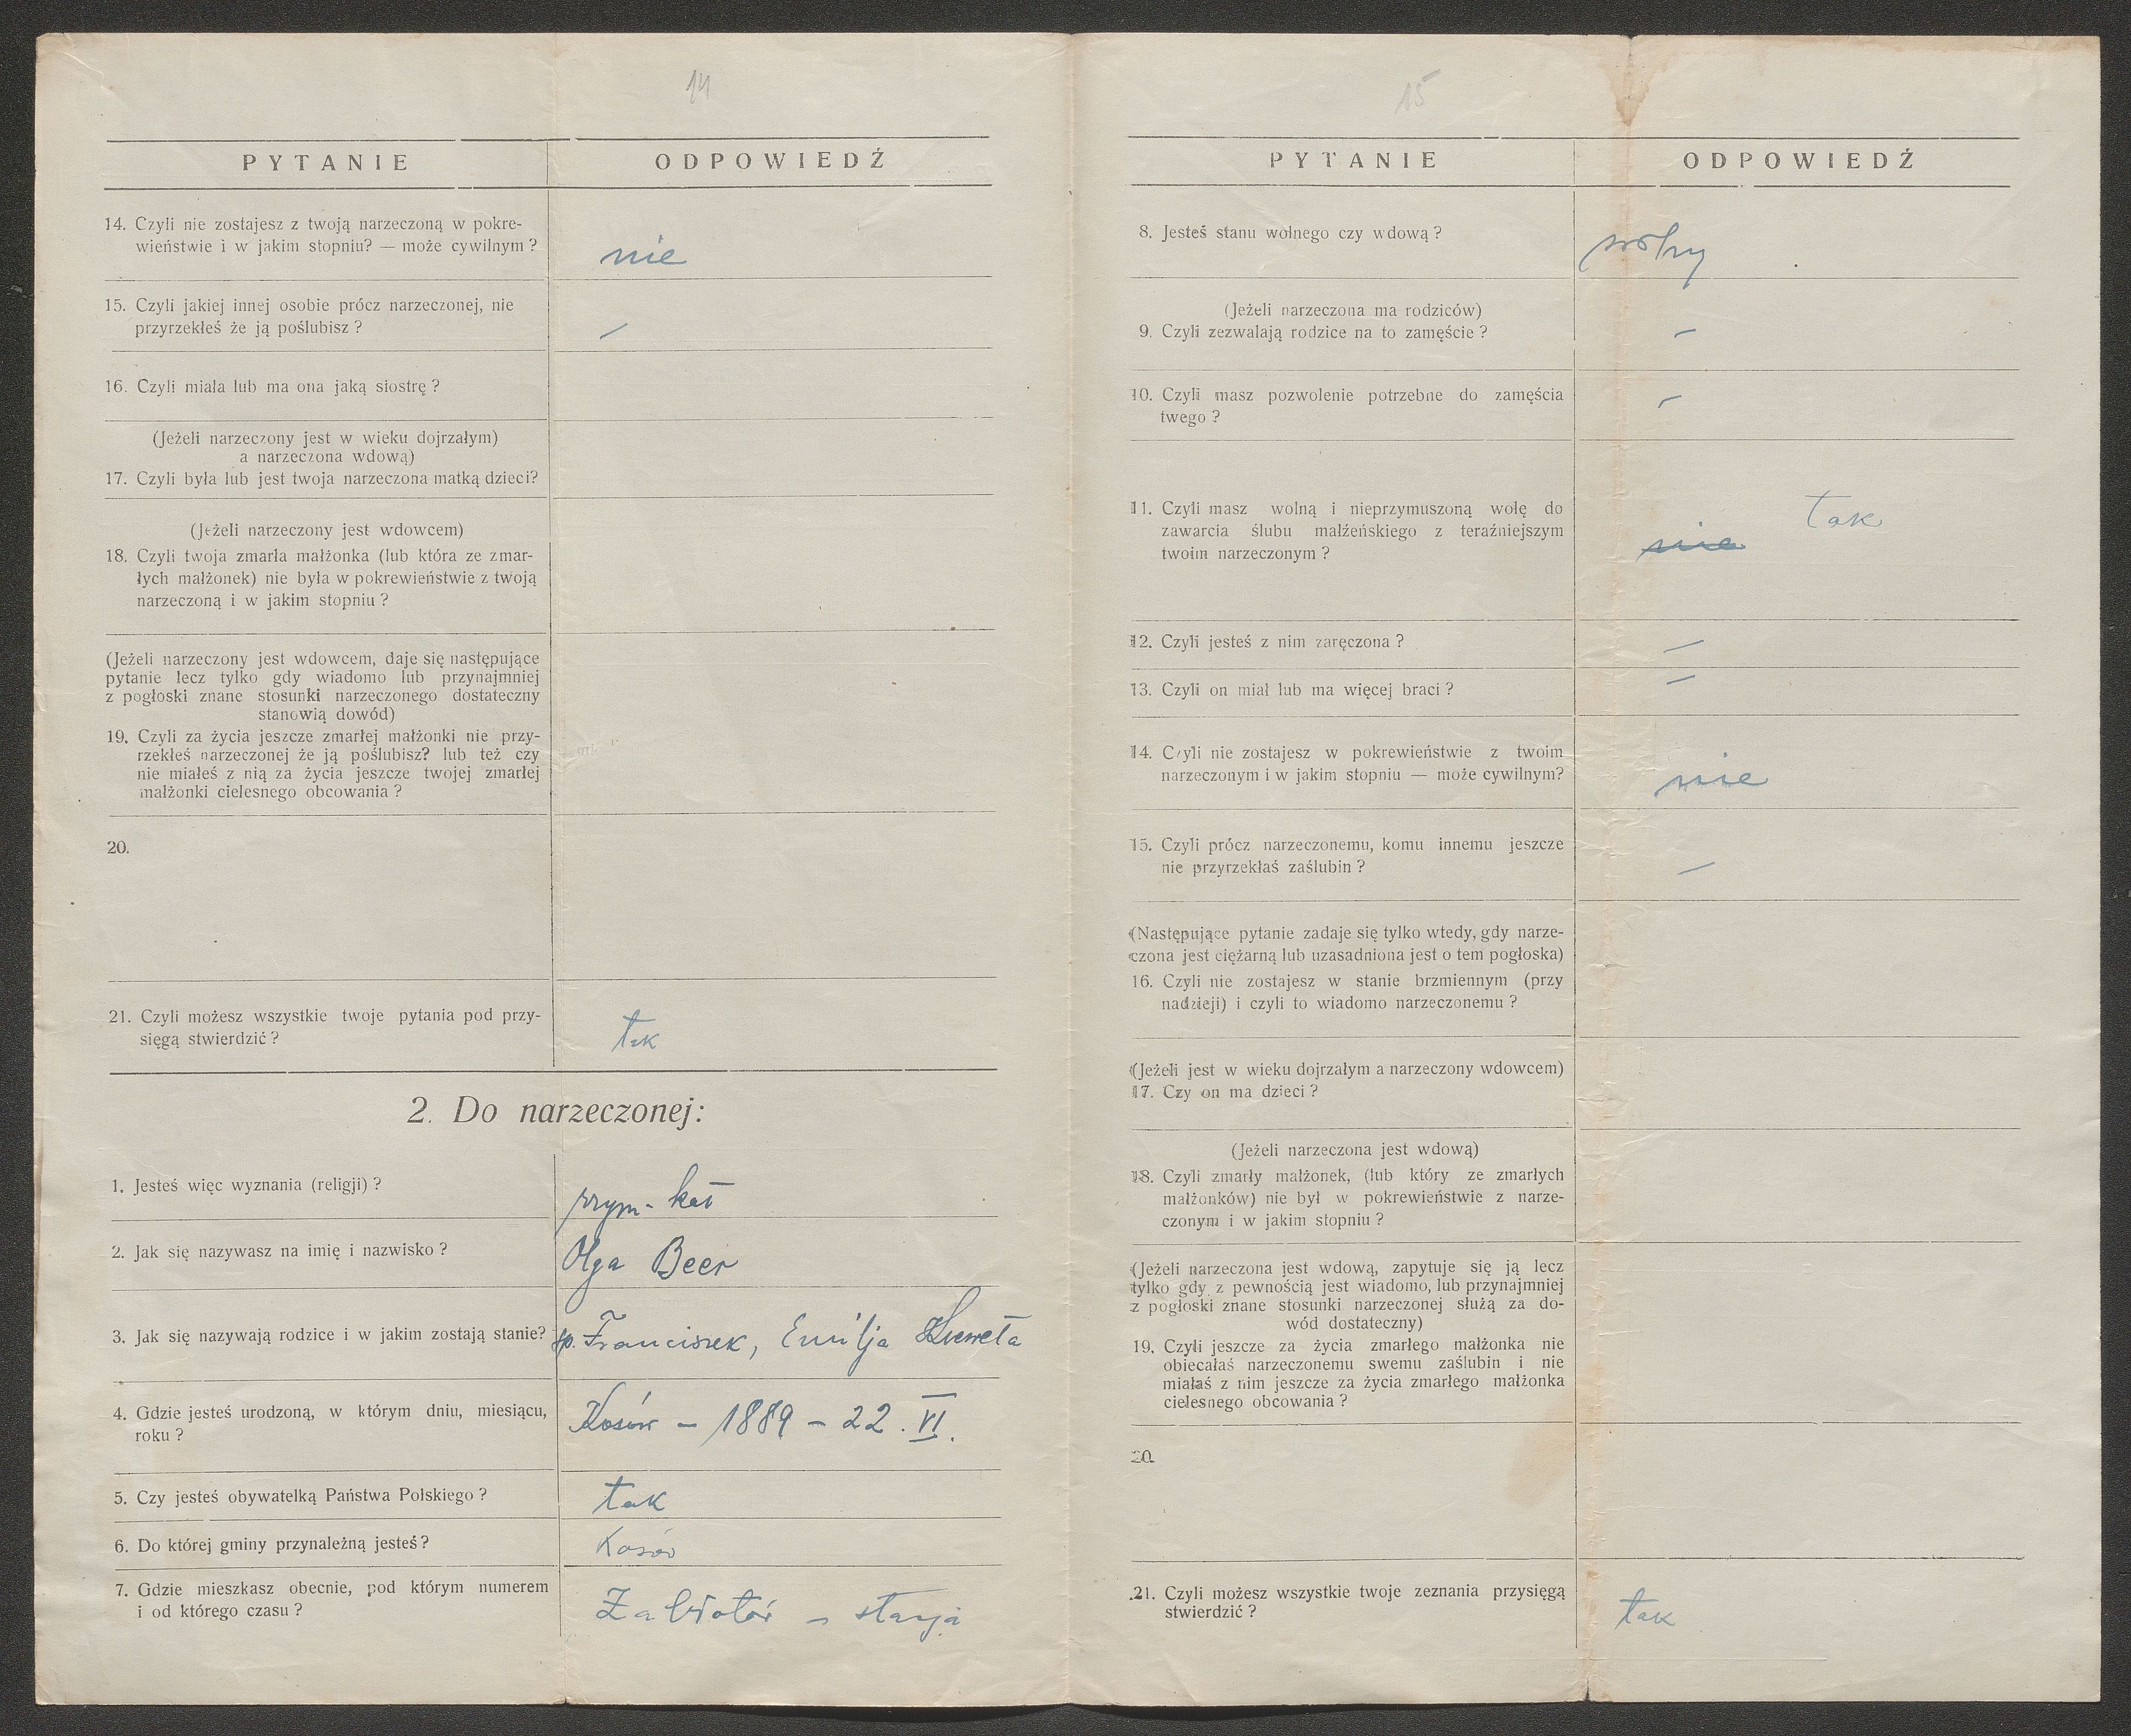 14
PYTANIE ODPOWIEDŹ
14. Czyli nie zostajesz z twoją narzeczoną w pokre-
wieństwie i w jakim stopniu? — może cywilnym?
nie
15. Czyli jakiej innej osobie prócz narzeczonej, nie
przyrzekłeś że ją poślubisz?
—
16. Czyli miała lub ma ona jaką siostrę?
(Jeżeli narzeczony jest w wieku dojrzałym)
a narzeczona wdową)
17. Czyli była lub jest twoja narzeczona matką dzieci?
(Jeżeli narzeczony jest wdowcem)
18. Czyli twoja zmarła małżonka (lub która ze zmar-
łych małżonek) nie była w pokrewieństwie z twoją
narzeczoną i w jakim stopniu?
(Jeżeli narzeczony jest wdowcem, daje się następujące
pytanie lecz tylko gdy wiadomo lub przynajmniej
z pogłoski znane stosunki narzeczonego dostateczny
stanowią dowód)
19. Czyli za życia jeszcze zmarłej małżonki nie przy-
rzekłeś narzeczonej że ją poślubisz? lub też czy
nie miałeś z nią za życia jeszcze twojej zmarłej
małżonki cielesnego obcowania?
20.
21. Czyli możesz wszystkie twoje pytania pod przy-
sięgą stwierdzić?
tak
2. Do narzeczonej:
1. Jesteś więc wyznania (religji)?
rzym-kat
2. Jak się nazywasz na imię i nazwisko?
Olga Beer
3. Jak się nazywają rodzice i w jakim zostają stanie?
śp. Franciszek, Emilja
4. Gdzie jesteś urodzoną, w którym dniu, miesiącu,
roku?
Kosów - 1889 - 22. VI.
5. Czy jesteś obywatelką Państwa Polskiego?
tak
6. Do której gminy przynależną jesteś?
Kosów
7. Gdzie mieszkasz obecnie, pod którym numerem
i od którego czasu?
Zabłotów - stacja
15
PYTANIE ODPOWIEDŹ
8. Jesteś stanu wolnego czy wdową?
wolny
(Jeżeli narzeczona ma rodziców)
9. Czyli zezwalają rodzice na to zamęście?
—
10. Czyli masz pozwolenie potrzebne do zamęścia
twego?
—
11. Czyli masz wolną i nieprzymuszoną wolę do
zawarcia ślubu małżeńskiego z teraźniejszym
twoim narzeczonym?
nie tak
12. Czyli jesteś z nim zaręczona?
—
13. Czyli on miał lub ma więcej braci?
—
14. Czyli nie zostajesz w pokrewieństwie z twoim
narzeczonym i w jakim stopniu — może cywilnym?
nie
15. Czyli prócz narzeczonemu, komu innemu jeszcze
nie przyrzekłaś zaślubin?
—
(Następujące pytanie zadaje się tylko wtedy, gdy narze-
czona jest ciężarną lub uzasadniona jest o tem pogłoska)
16. Czyli nie zostajesz w stanie brzmiennym (przy
nadzieji) i czyli to wiadomo narzeczonemu?
(Jeżeli jest w wieku dojrzałym a narzeczony wdowcem)
17. Czy on ma dzieci?
(Jeżeli narzeczona jest wdową)
18. Czyli zmarły małżonek, (lub który ze zmarłych
małżonków) nie był w pokrewieństwie z narze-
czonym i w jakim stopniu?
(Jeżeli narzeczona jest wdową, zapytuje się ją lecz
tylko gdy z pewnością jest wiadomo, lub przynajmniej
z pogłoski znane stosunki narzeczonej służą za do-
wód dostateczny)
19. Czyli jeszcze za życia zmarłego małżonka nie
obiecałaś narzeczonemu swemu zaślubin i nie
miałaś z nim jeszcze za życia zmarłego małżonka
cielesnego obcowania?
20.
21. Czyli możesz wszystkie twoje zeznania przysięgą
stwierdzić?
tak